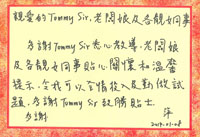 親愛的Tommy Sir、老闆娘及各靚女同事
多謝Tommy Sir悉心教導,老闆娘
及各靚女同事貼心關懷和溫馨
提示,令我可以全情投入及勤做試
題,多謝Tommy Sir 致勝貼士.
多謝
2019.01.08